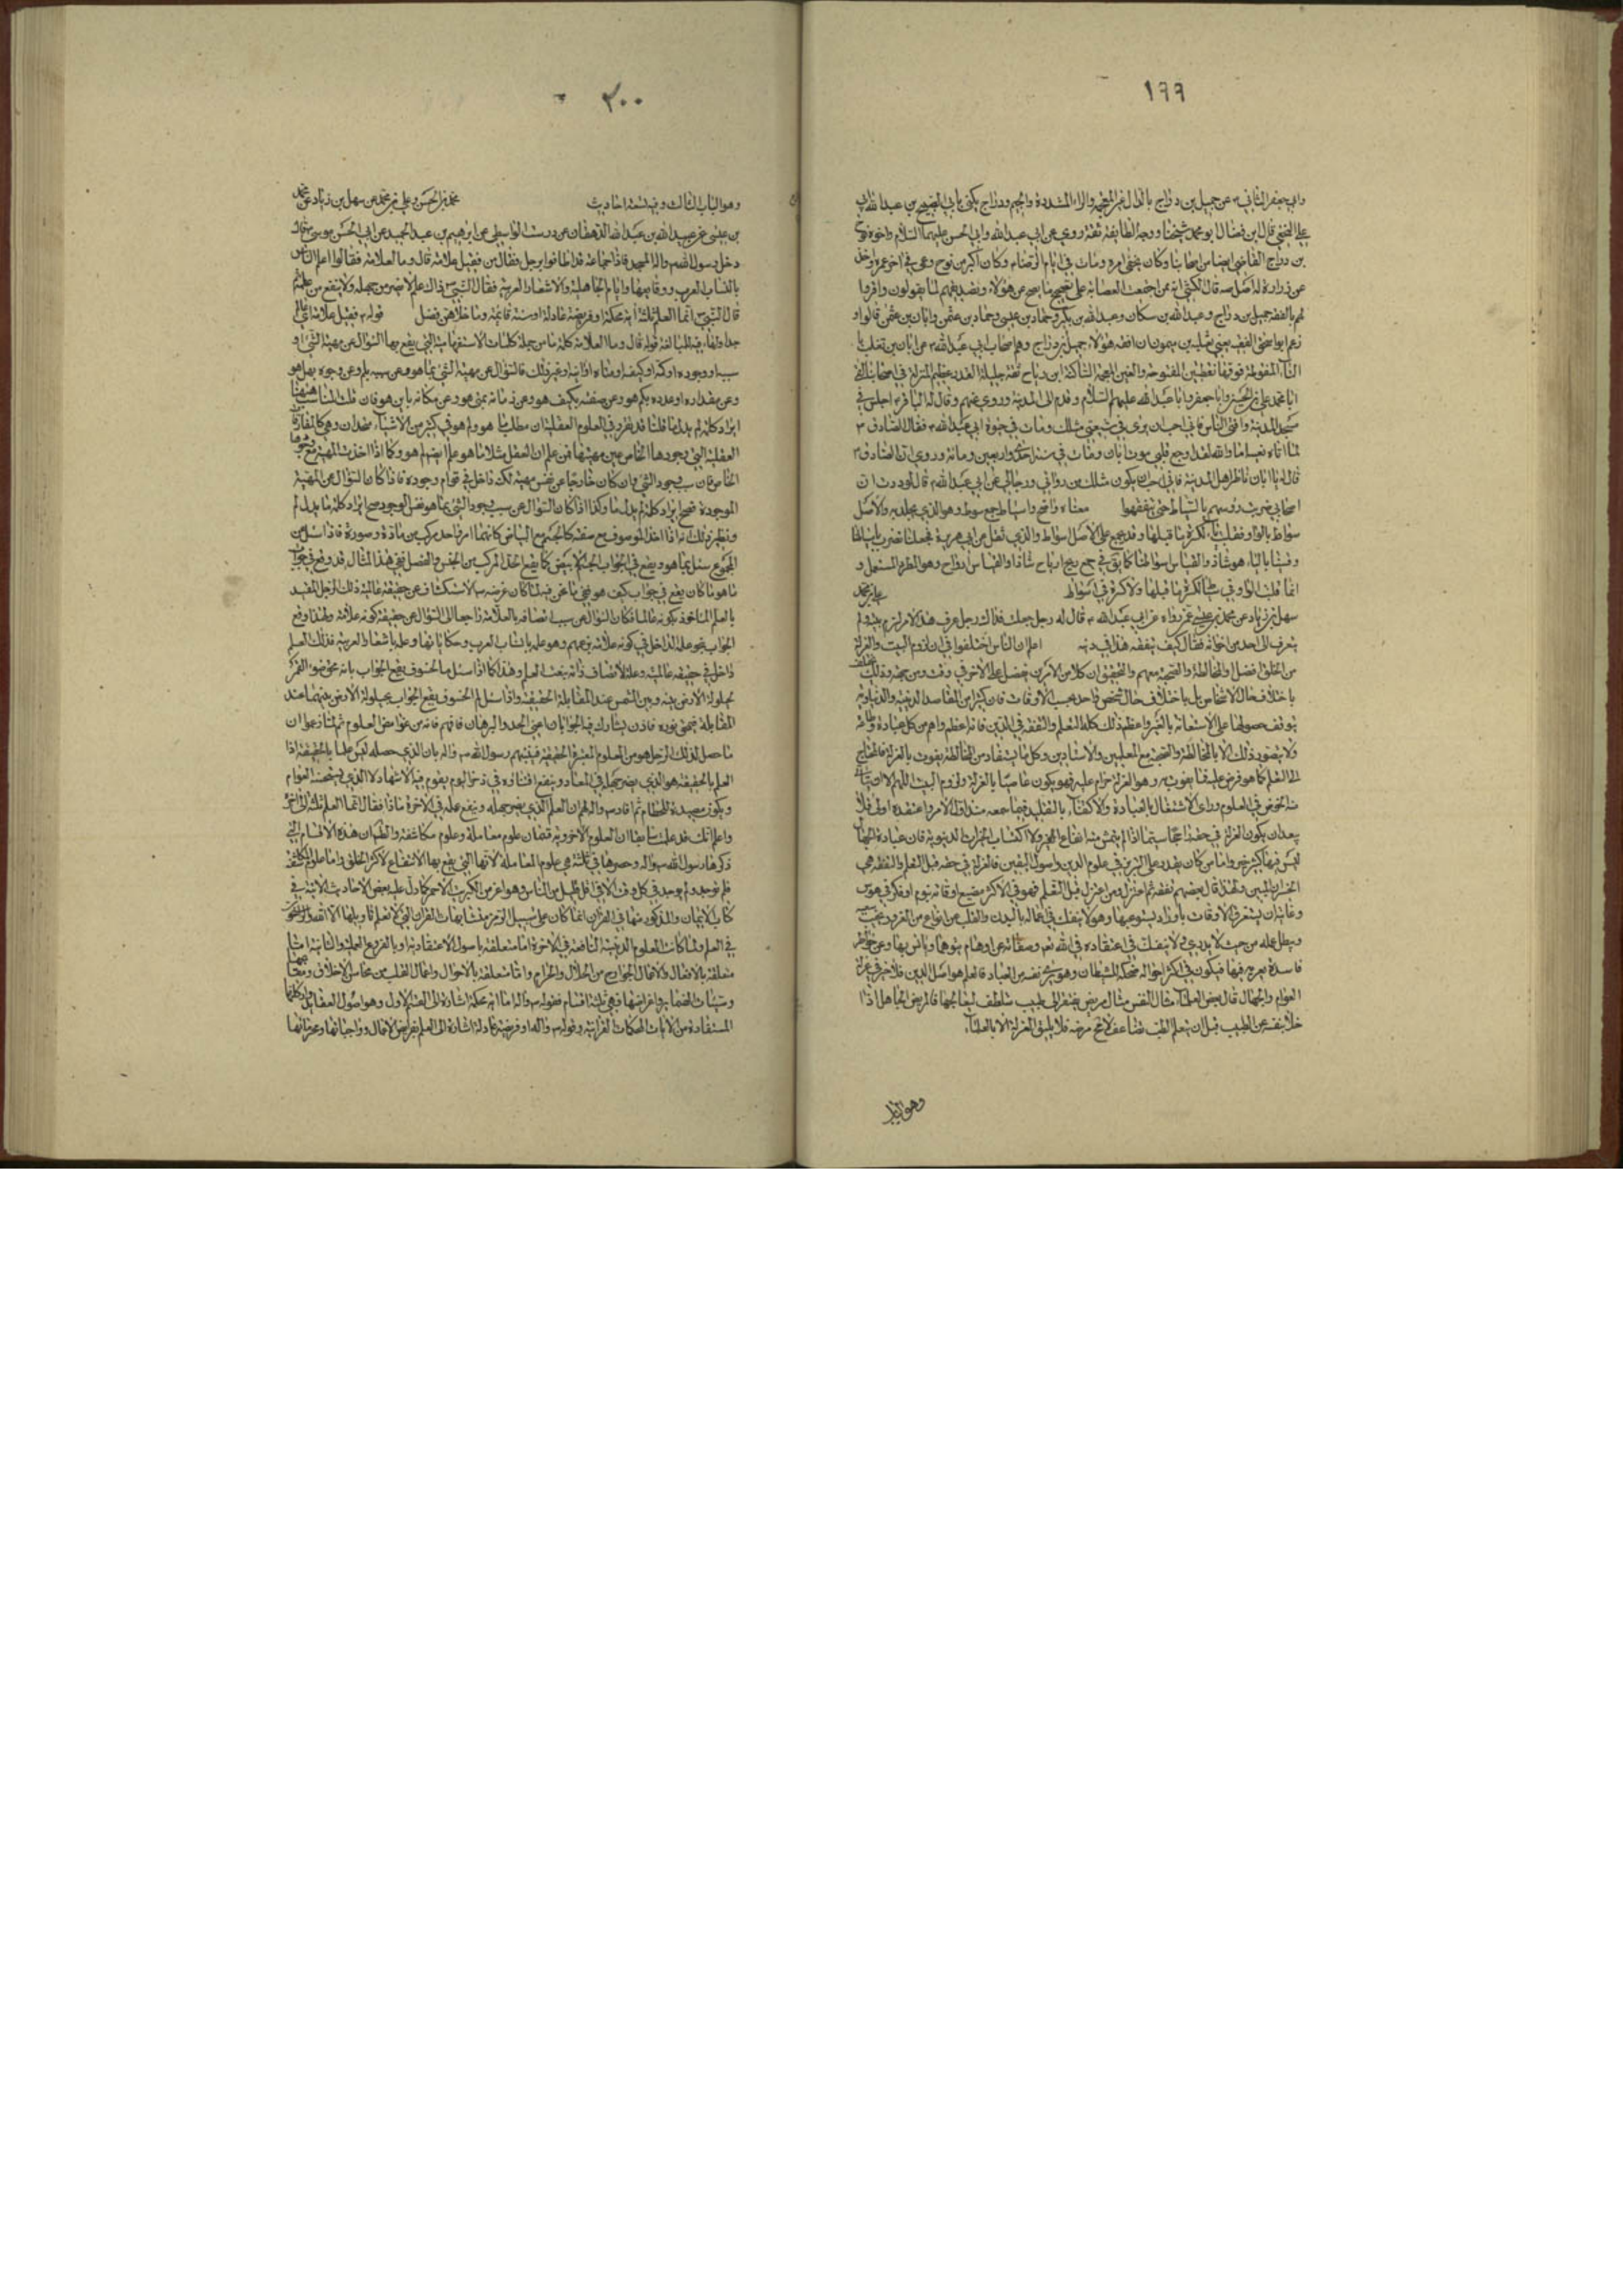 ١٩٩
وابي جعفر الثاني ع عن جميل بن دراج بالدال الغير المعجمة والراء المشددة والجيم ودراج يكنى بابي الصبيح بن عبد الله ابي
علي النخعي قال ابن فضال ابو محمد شيخنا ووجه الطايفة ثقة روى عن ابي عبد الله وابي الحسن عليهما السلام واخوه نوح
بن دراج القاضي ايضا من اصحابنا وكان يخفي امره ومات في ايام الرضا ع وكان اكبر من نوح وعمي في اخر عمره واخذ
عن زرارة له اصل صه قال الكشي انه ممن اجمعت العصابة على تصحيح ما يصح عن هؤلاء وتصديقهم لما يقولون واقروا
لهم بالفقه جميل بن دراج وعبد الله بن مسكان وعبد الله بن بكير وحماد بن عيسى وحماد بن عثمن وابان بن عثمن قالوا و
زعم ابو اسحق الفقيه يعني ثعلبة بن ميمون ان افقه هؤلاء جميل بن دراج وهم اصحاب ابي عبد الله ع عن ابان بن تغلب
التاء المنقوطة فوقها نقطتين المفتوحة والغين المعجمة الساكنة ابن رباح ثقة جليل القدر عظيم المنزلة في اصحابنا لقي
ابا محمد علي بن الحسين وابا جعفر وابا عبد الله عليهم السلام وقدم الى المدينة وروى عنهم وقال له الباقر ع اجلس في
مسجد المدينة وافت الناس فاني احب ان يرى في شيعتي مثلك ومات في حيوة ابي عبد الله ع فقال الصادق ع
لما اتاه نعيه اما والله لقد اوجع قلبي موت ابان ومات في سنة احدى واربعين ومائة وروى ان الصادق ع
قال له يا ابان ناظر اهل المدينة فاني احب ان يكون مثلك من رواتي ورجالي عن ابي عبد الله ع قال لوددت ان
اصحابي ضربت رؤسهم بالسياط حتى يتفقهوا معناه واضح والسياط جمع سوط وهو الذي يجلد به والاصل
سواط بالواو فقلبت ياء لكسرة ما قبلها وقد يجمع على الاصل اسواط والذي نقل عن ابي هريرة فجعلنا نضربه باسياطنا
وقسينا بالياء هو شاذ والقياس سواطنا كما يق في جمع ريح ارياح شاذا والقياس ارواح وهو المطرد المستعمل و
انما قلبت الواو في سياط لكسرة ما قبلها ولا كسرة في اسواط علي بن محمد
سهل بن زياد عن محمد بن عيسى عمن رواه عن ابي عبد الله ع قال له رجل جعلت فداك رجل عرف هذا الامر لزم بيته ولم
يتعرف الى احد من اخوانه فقال كيف يتفقه هذا في دينه اعلم ان الناس اختلفوا في ان لزوم البيت والعزلة
من الخلق افضل او المخالطة والصحبة معهم والتحقيق ان كلا من الامرين يفضل على الاخر في وقت ومن جهة وذلك يختلف
باختلاف حال الاشخاص بل باختلاف حال شخص واحد بحسب الاوقات فان كثيرا من المقاصد الدينية والدنياوية
يتوقف حصولها على الاستعانة بالغير واعظم ذلك كله التعلم والتفقه في الدين فانه اعظم واهم من كل عبادة وطاعة
ولا يتصور ذلك الا بالمخالطة والصحبة مع المعلمين والاستادين وكل ما يستفاد من المخالطة يفوت بالعزلة فالمحتاج
الى التعلم لما هو فرض عليه فيما يفوت به وهو العزلة حرام عليه فهو يكون عاصيا بالعزلة ولزوم البيت
منه الخوض في العلوم وراى الاشتغال بالعبادة والاكتفاء بالتقليد
يبعد ان يكون العزلة في حقه
ليس فيها كثير خير واما من كان يقدر على التبرز في علوم الدين واصول اليقين فالعزلة في حقه قبل التعلم والتفقه هي
الخسران المبين ولهذا قال بعضهم تفقه ثم اعتزل ومن اعتزل قبل التعلم فهو في الاكثر مضيع اوقاته بنوم او فكر في هوس
وغايته ان يستغرق الاوقات باوراد يستوعبها وهو لا ينفك في اعماله بالبدن والقلب عن انواع من الغرور يخيب سعيه
ويبطل عمله من حيث لا يدري ولا ينفك في اعتقاده في الله تعم وصفاته عن اوهام يتوهمها ويانس بها وعن خواطر
فاسدة يعتريه فيها فيكون في اكثر احواله ضحكة للشيطان وهو يرى نفسه من العباد فالعلم هو اصل الدين فلا خير في عزلة
العوام والجهال قال بعض العلماء مثال النفس مثال مريض يفتقر الى طبيب متلطف ليعالجها فالمريض الجاهل اذا
خلا بنفسه عن الطبيب قبل ان يتعلم الطب تضاعف لا محة مرضه فلا يليق العزلة الا بالعالم
وهو الباب
٢٠٠
وهو الباب الثالث وفيه تسعة احاديث محمد بن الحسن وعلي بن محمد عن سهل بن زياد عن محمد
بن عيسى عن عبيد الله بن عبد الله الدهقان عن درست الواسطي عن ابراهيم بن عبد الحميد عن ابي الحسن موسى ع قال
دخل رسول الله ص واله المسجد فاذا جماعة قد اطافوا برجل فقال من فقيل علامة قال وما العلامة فقالوا اعلم الناس
بانساب العرب ووقايعها وايام الجاهلية والاشعار العربية فقال النبي ص ذاك علم لا يضر من جهله ولا ينفع من علمه
قال النبي ص انما العلم ثلثة اية محكمة او فريضة عادلة او سنة قائمة وما خلاهن فضل قوله ع فقيل علامة اي عالم
جدا والتاء فيه للمبالغة قوله قال وما العلامة كلمة ما من جملة كلمات الاستفهامية التي يقع بها السؤال عن مهية الشيء او
سببه او وجوده او كمه او كيفه او متاه او اينه وغير ذلك فالسؤال عن مهية الشيء بما هو وعن سببه بلم وعن وجوده بهل هو
وعن مقداره او عدده بكم هو وعن صفته بكيف هو وعن زمانه بمتى هو وعن مكانه باين هو فان قلت المناسب هيهنا
ايراد كلمة لم بدل ما قلنا قد تقرر في العلوم العقلية ان مطلب ما هو ولم هو في كثير من الاشياء متحدان وهي كالمفارقات
العقلية التي وجودها الخاص عين مهيتها فمن علم ان العقل مثلا ما هو علم ايضا لم هو وكذا اذا اخذت المهية مع وجودها
الخاص فان سبب وجود الشيء وان كان خارجا عن نفس مهيته لكنه داخل في قوام وجوده فاذا كان السؤال عن المهية
الموجودة فصح ايراد كلمة لم بدل ما وكذا اذا كان السؤال عن سبب وجود الشيء بما هو نفس الوجود صح ايراد كلمة ما بدل لم
ونظير ذلك انه اذا اخذ الموصوف مع صفته كالجسم مع البياض كانهما امر واحد مركب من مادة وصورة فاذا سئل عن
المجموع
ما هو ما كان يقع في جواب كيف هو
بالعلم الماخوذ بكونه عالما فكان السؤال عن سبب اتصافه بالعلامة راجعا الى السؤال عن حقيقة كونه علامة ولهذا وقع
الجواب بنحو علمه الداخل في كونه علامة بزعمهم وهو علمه بانساب العرب وحكاياتها وعلمه باشعار العربية فذلك العلم
داخل في حقيقة عالميته وعلة لاتصاف ذاته بنعت العلم وهذا كما اذا سئل ما الخسوف يقع الجواب بانه محو ضوء القمر
لحيلولة الارض بينه وبين الشمس عند المقابلة الحقيقية واذا سئل لم الخسوف يقع الجواب بحيلولة الارض بينهما عند
المقابلة فيمحق نوره فاذن يتشارك فيه الجوابان اعني الحد والبرهان فافهم فانه من غوامض العلوم ثم لما زعموا ان
ما حصل لذلك الرجل هو من العلوم المعتبرة الحقيقية فنبههم رسول الله ص واله بان الذي حصله ليس علما بالحقيقة اذا
العلم بالحقيقة هو الذي يضر جهله في المعاد وينفع اقتناؤه في ذخر اليوم يقوم فيه الاشهاد لا الذي يستحسنه العوام
ويكون مصيدة للحطام ثم افاد ص واله لهم ان العلم الذي يضر جهله وينفع علمه في الاخرة ماذا فقال انما العلم ثلثة الى اخره
واعلم انك قد علمت سابقا ان العلوم الاخروية قسمان علوم معاملة وعلوم مكاشفة والظاهر ان هذه الاقسام التي
ذكرها رسول الله ص واله وحصرها في ثلثة هي علوم المعاملة لانها التي يقع بها الانتفاع لاكثر الخلق واما علوم المكاشفة
فلم توجد ولم يوجد في كل وقت الا في اقل قليل من الناس وهو اعز من الكبريت الاحمر كما دل عليه بعض الاحاديث الاتية في
كتاب الايمان والمذكور منها في القران انما كان على سبيل الرمز من متشابهات القران التي لا يعلم تاويلها الا الله والراسخون
في العلم ولما كانت العلوم الدينية النافعة في الاخرة اما متعلقة باصول الاعتقادية او بالفروع العملية والثانية اما
متعلقة بالافعال والاعمال الجوارح من الحلال والحرام واما متعلقة بالاحوال واعمال القلب من محاسن الاخلاق
وسيئات الضماير واغراضها فهي ثلثة اقسام فقوله ص واله اما اية محكمة اشارة الى القسم الاول وهو اصول العقايد
المستفادة من الايات المحكمات القرانية وقوله ص واله او فريضة عادلة اشارة الى العلم بفرايض الاعمال وواجباتها